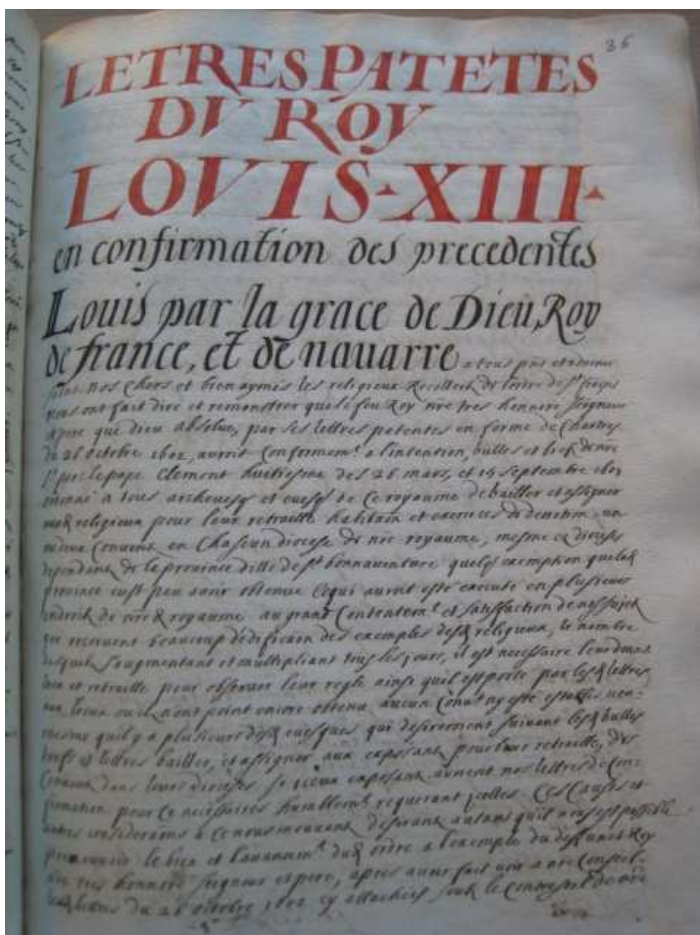 36
LETRES PATETES
DV ROY
LOVIS-XIII-
en confirmation des precedentes
Louis par la grace de Dieu, Roy
de france, et de nauarre a tous pñs et aduenir
salut Nos Chers et bien aymés les religieux Recollectz de lordre de st françois
nous ont fait dire et remonstrer que le feu Roy nre tres honnoré seigneur
et pere que dieu absolue, par ses lettres patentes en forme de Chartres
du 26 octobre 1602, auroit Conformemt a l'intention, bulles et brefz de nre
st pere le pape Clement huitiesme des 26 mars, et septembre
a tous archeuesqs et euesqs de Ce royaume de bailler et assigner
religieux pour leur retraitte habitation et exercices de deuotion, un
Conuent en Chascun diocese de nre royaume, mesme ez dioceses
dependans de la prouince ditte de st bonnauenture quelq exemption que lad
prouince eust peu auoir obtenue Ce qui auroit esté executé en plusieurs
endroits de nred royaume au grand Contentemt et satisfaction de nos sujets
qui recoiuent beaucoup dedification des exemples desd religieux, le nombre
desquels s'augmentant et multipliant tous les jours, il est necessaire
et retraitte pour obseruer leur regle ainsi quil est porté par lesd lettres
lieux ou ils n'ont point encore obtenu aucun
mesme quil y a plusieurs desd euesques qui desireroient suiuant lesd bulles
brefs et lettres bailler, et assigner aux exposans pour leur retraitte, des
Conuents dans leurs dioceses, si iceux exposans auoient nos lettres de Con-
firmation pour Ce necessaires humblemt requerant icelles Ces Causes et
autres considerations a Ce nous mouuant desirans autant quil nous est possible
le bien et l'auancemt dud ordre a l'exemple du deffunct Roy
nre tres honnoré seigneur et pere, apres auoir fait voir a nre Conseil
lesd lettres du 26 octobre 1602 cy attachées soubz le Contrescel de nre